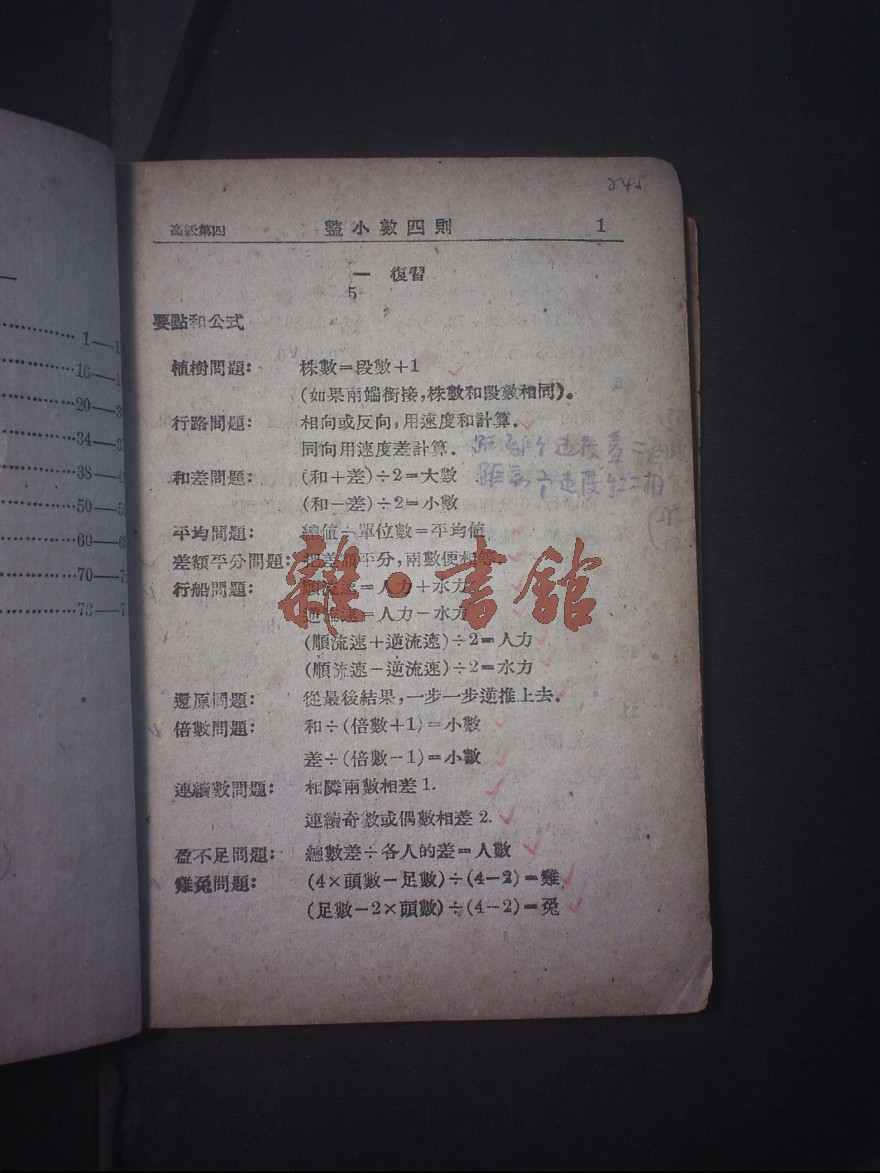 1—1
16—1
20—3
34—3
38—4
50—5
60—6
70—7
73—7
245
高級第四 整小數四則 1
一 復習
5
要點和公式
植樹問題: 株數=段數+1
(如果兩端銜接,株數和段數相同)。
行路問題: 相向或反向,用速度和計算.
同向用速度差計算.
距離÷速度差=追
距離÷速度和=相
和差問題: (和+差)÷2=大數
(和-差)÷2=小數
平均問題: 總值÷單位數=平均值
差額平分問題: 把差額平分,兩數便相等
行船問題: 順流速=人力+水力
逆流速=人力-水力
雜·書館
(順流速+逆流速)÷2=人力
(順流速-逆流速)÷2=水力
還原問題: 從最後結果,一步一步逆推上去.
倍數問題: 和÷(倍數+1)=小數
差÷(倍數-1)=小數
連續數問題: 相隣兩數相差1.
連續奇數或偶數相差2.
盈不足問題: 總數差÷各人的差=人數
雞兔問題: (4×頭數-足數)÷(4-2)=雞
(足數-2×頭數)÷(4-2)=兔